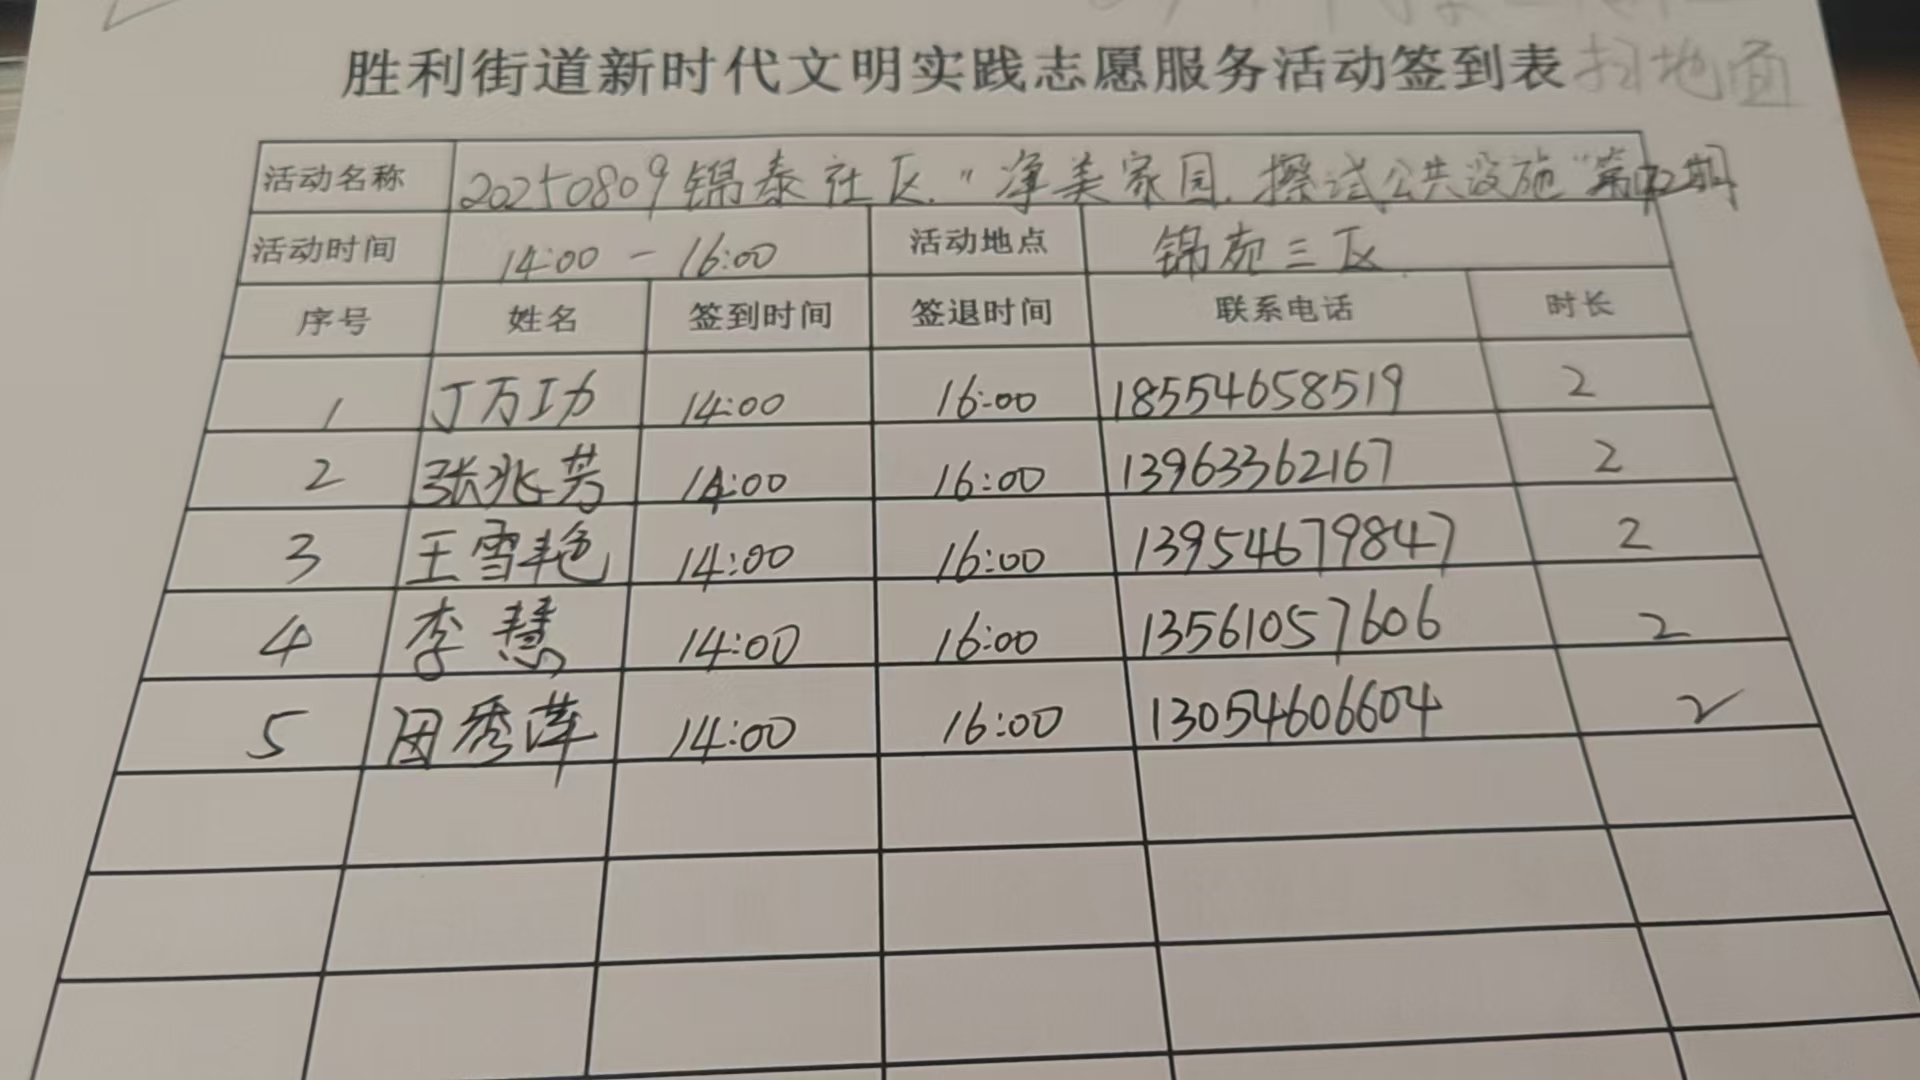 胜利街道新时代文明实践志愿服务活动签到表 扫地面
活动名称 20250809锦泰社区“净美家园,擦试公共设施”第 期
活动时间 14:00 - 16:00 活动地点 锦苑三区
序号 姓名 签到时间 签退时间 联系电话 时长
1 丁万功 14:00 16:00 18554658519 2
2 张兆芳 14:00 16:00 13963362167 2
3 王雪艳 14:00 16:00 13954679847 2
4 李慧 14:00 16:00 13561057606 2
5 田秀萍 14:00 16:00 13054606604 2